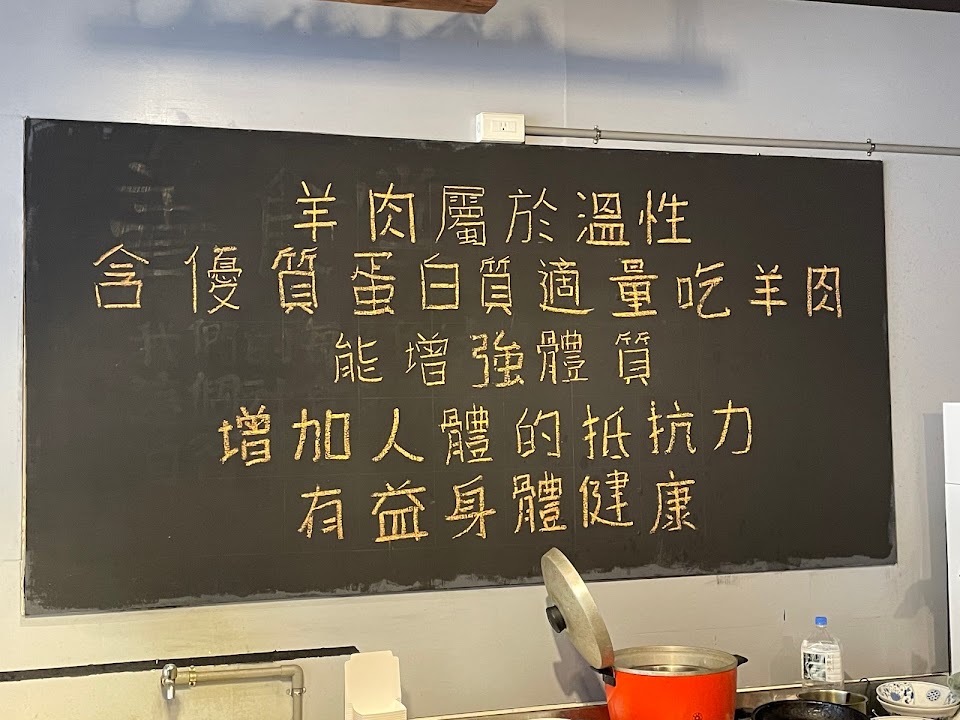 羊肉屬於溫性
含優質蛋白質適量吃羊肉
能增強體質
增加人體的抵抗力
有益身體健康